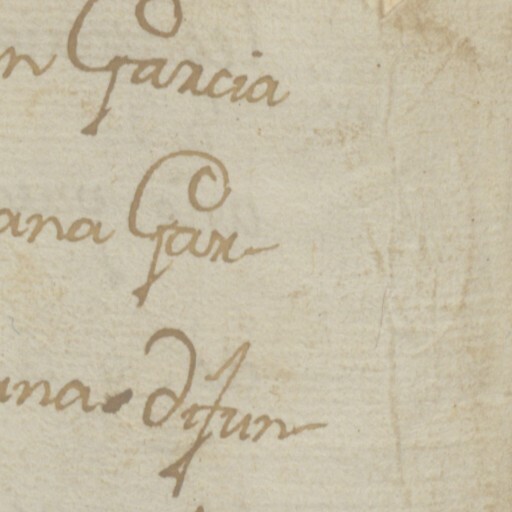 n Garcia
ana Gar-
una difun-